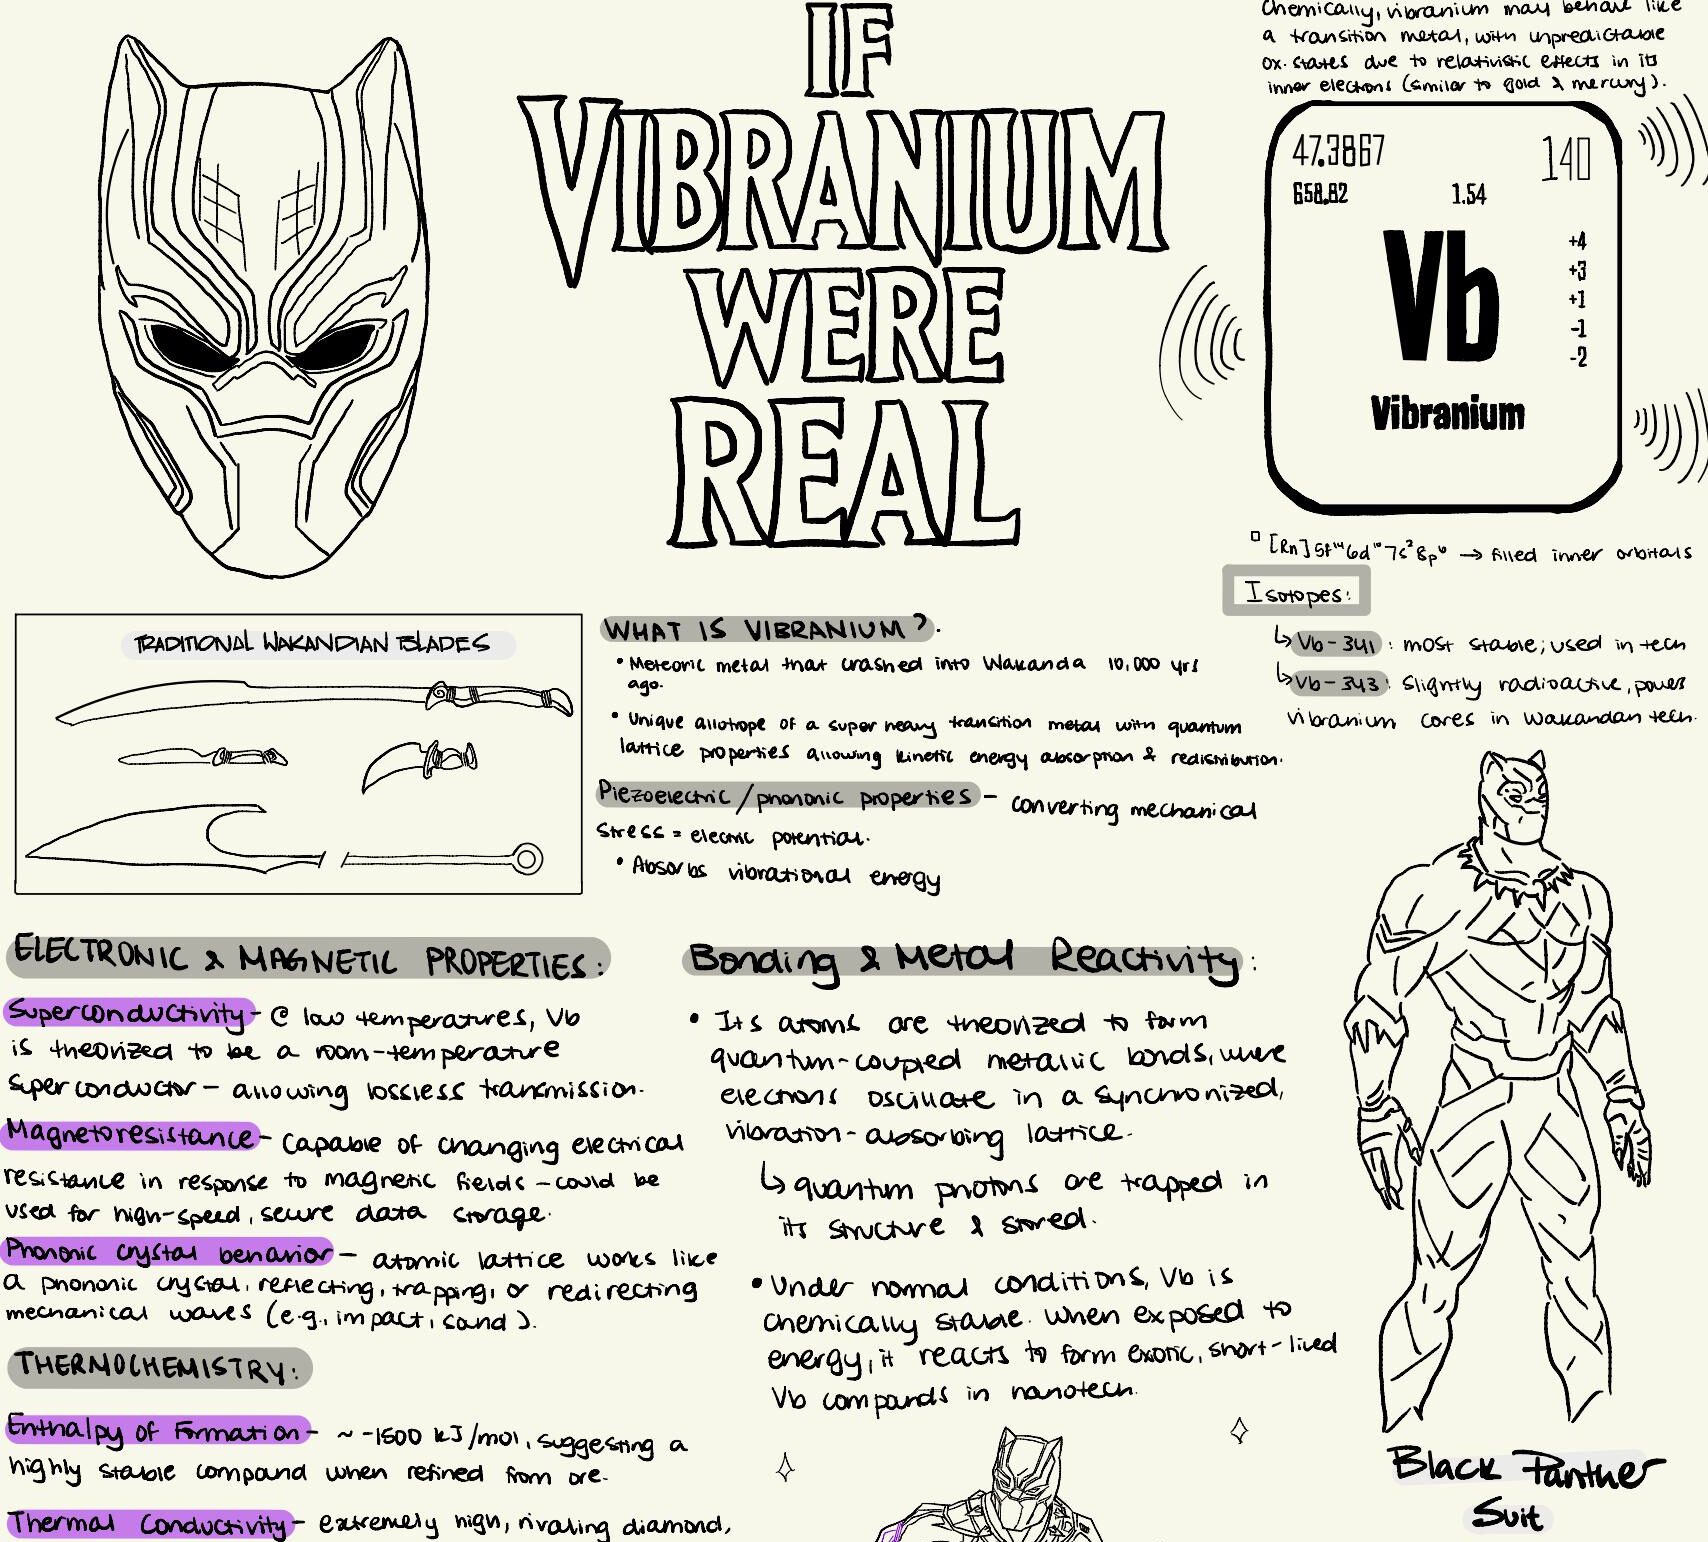 IF
VIBRANIUM
WERE
REAL
Chemically, vibranium may behave like
a transition metal, with unpredictable
ox. states due to relativistic effects in its
inner electrons (similar to gold & mercury).
47.3867 140
658.82 1.54
Vb
+4
+3
+1
-1
-2
Vibranium
[Rn] 5f¹⁴ 6d¹⁰ 7s² 8p⁶ → filled inner orbitals
Isotopes:
↳ Vb-341: most stable; used in tech
↳ Vb-343: slightly radioactive, power
vibranium cores in Wakandan tech.
TRADITIONAL WAKANDIAN BLADES
WHAT IS VIBRANIUM?.
• Meteoric metal that crashed into Wakanda 10,000 yrs
ago.
• Unique allotrope of a super heavy transition metal with quantum
lattice properties allowing kinetic energy absorption & redistribution.
Piezoelectric/phononic properties - converting mechanical
stress = electric potential.
• Absorbs vibrational energy
ELECTRONIC & MAGNETIC PROPERTIES:
Superconductivity - @ low temperatures, Vb
is theorized to be a room-temperature
superconductor - allowing lossless transmission.
Magnetoresistance - capable of changing electrical
resistance in response to magnetic fields - could be
used for high-speed, secure data storage.
Phononic crystal behavior - atomic lattice works like
a phononic crystal, reflecting, trapping, or redirecting
mechanical waves (e.g., impact, sound).
THERMOCHEMISTRY:
Enthalpy of Formation - ~ -1500 kJ/mol, suggesting a
highly stable compound when refined from ore.
Thermal Conductivity - extremely high, rivaling diamond,
Bonding & Metal Reactivity:
• Its atoms are theorized to form
quantum-coupled metallic bonds, where
electrons oscillate in a synchronized,
vibration-absorbing lattice.
↳ quantum photons are trapped in
its structure & stored.
• Under normal conditions, Vb is
chemically stable. When exposed to
energy, it reacts to form exotic, short-lived
Vb compounds in nanotech.
Black Panther
Suit